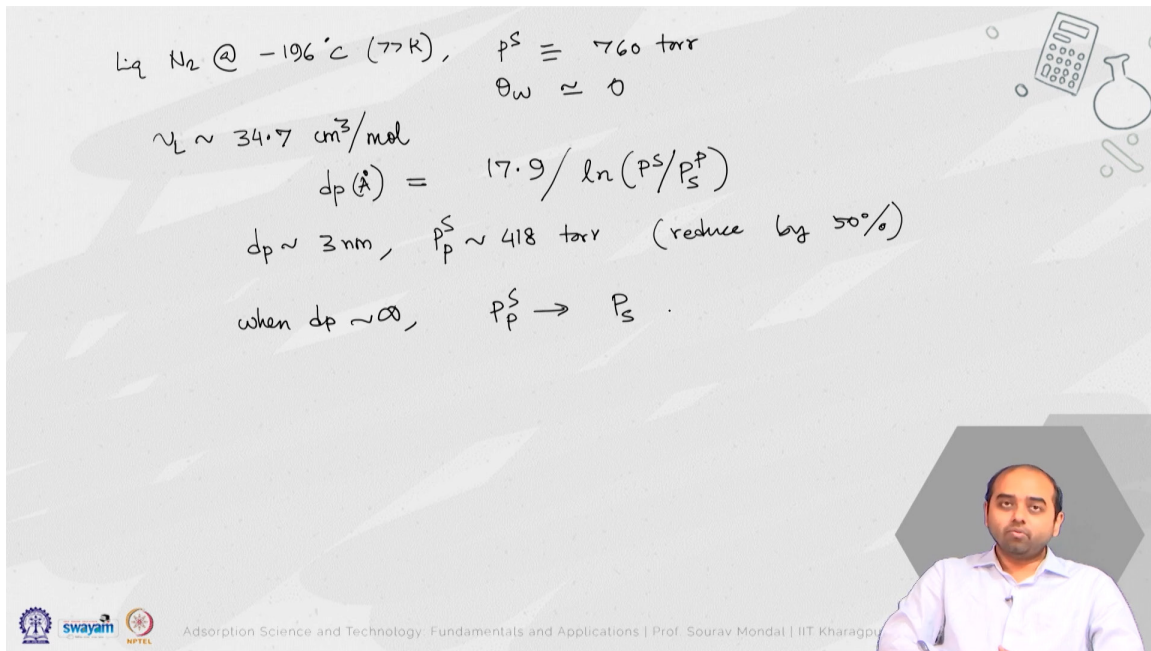 Liq N₂ @ -196°C (77K), pˢ ≡ 760 torr
θw ≃ 0
v_L ~ 34.7 cm³/mol
dp(Å) = 17.9/ln(Pˢ/Pₛᵖ)
dp ~ 3nm, Pₚˢ ~ 418 torr (reduce by 50%)
when dp ~∞, Pₚˢ → Pₛ .
swayam
NPTEL
Adsorption Science and Technology: Fundamentals and Applications | Prof. Sourav Mondal | IIT Kharagpu